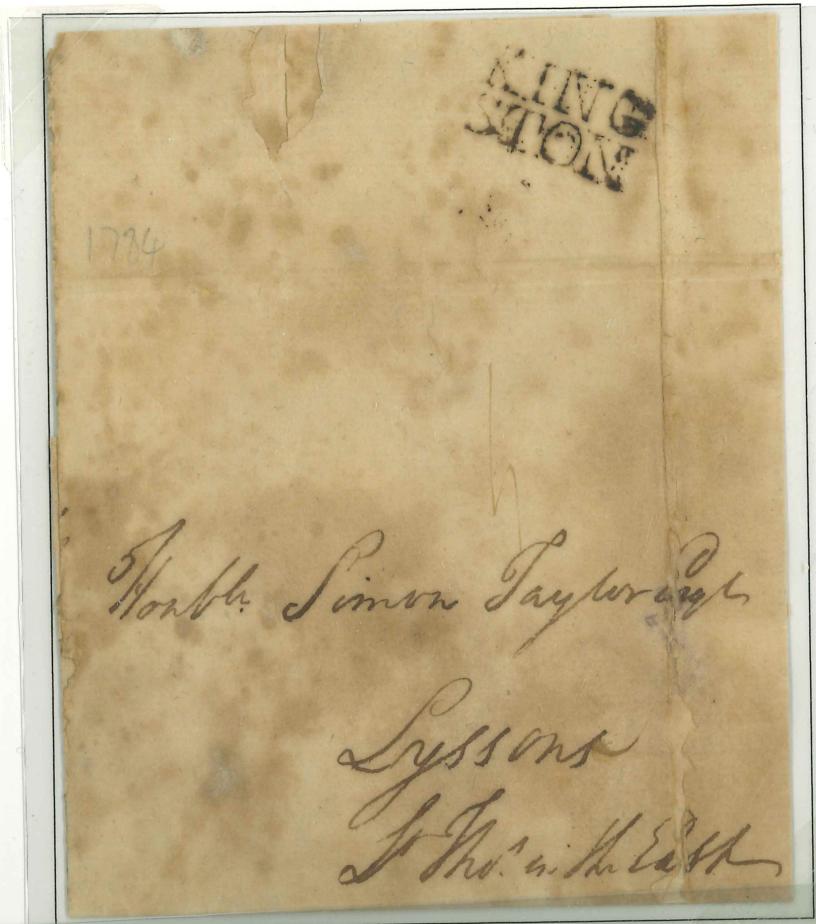 KING
STON
1784
Honble. Simon Taylor Esqr
Lyssons
St Thos. in the East